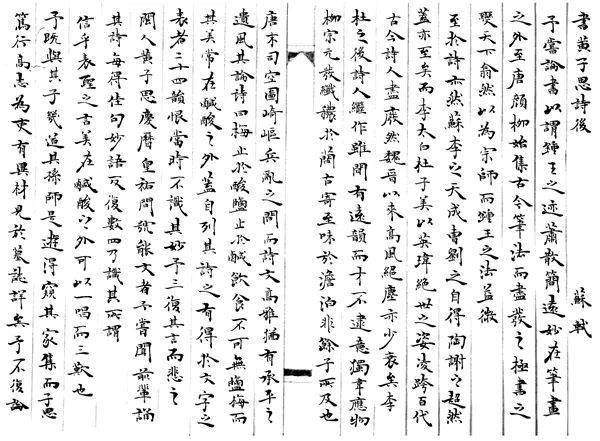 書黃子思詩後 蘇軾
予嘗論書以謂鍾王之迹蕭散簡遠妙在筆畫
之外至唐顏柳始集古今筆法而盡發之極書之
變天下翕然以為宗師而鍾王之法益微
至於詩亦然蘇李之天成曹劉之自得陶謝之超然
蓋亦至矣而李太白杜子美以英瑋絕世之姿凌跨百代
古今詩人盡廢然魏晉以來高風絕塵亦少衰矣李
杜之後詩人繼作雖間有遠韻而才不逮意獨韋應物
柳宗元發纖穠於簡古寄至味於澹泊非餘子所及也
唐末司空圖崎嶇兵亂之間而詩文高雅猶有承平之
遺風其論詩曰梅止於酸鹽止於鹹飲食不可無鹽梅而
其美常在鹹酸之外蓋自列其詩之有得於文字之
表者二十四韻恨當時不識其妙予三復其言而悲之
閩人黃子思慶曆皇祐間號能文者予嘗聞前輩誦
其詩每得佳句妙語反復數四乃識其所謂
信乎表聖之言美在鹹酸之外可以一唱而三歎也
予既與其子幾道其孫師是遊得窺其家集而子思
篤行高志為吏有異材見於墓誌詳矣予不復論